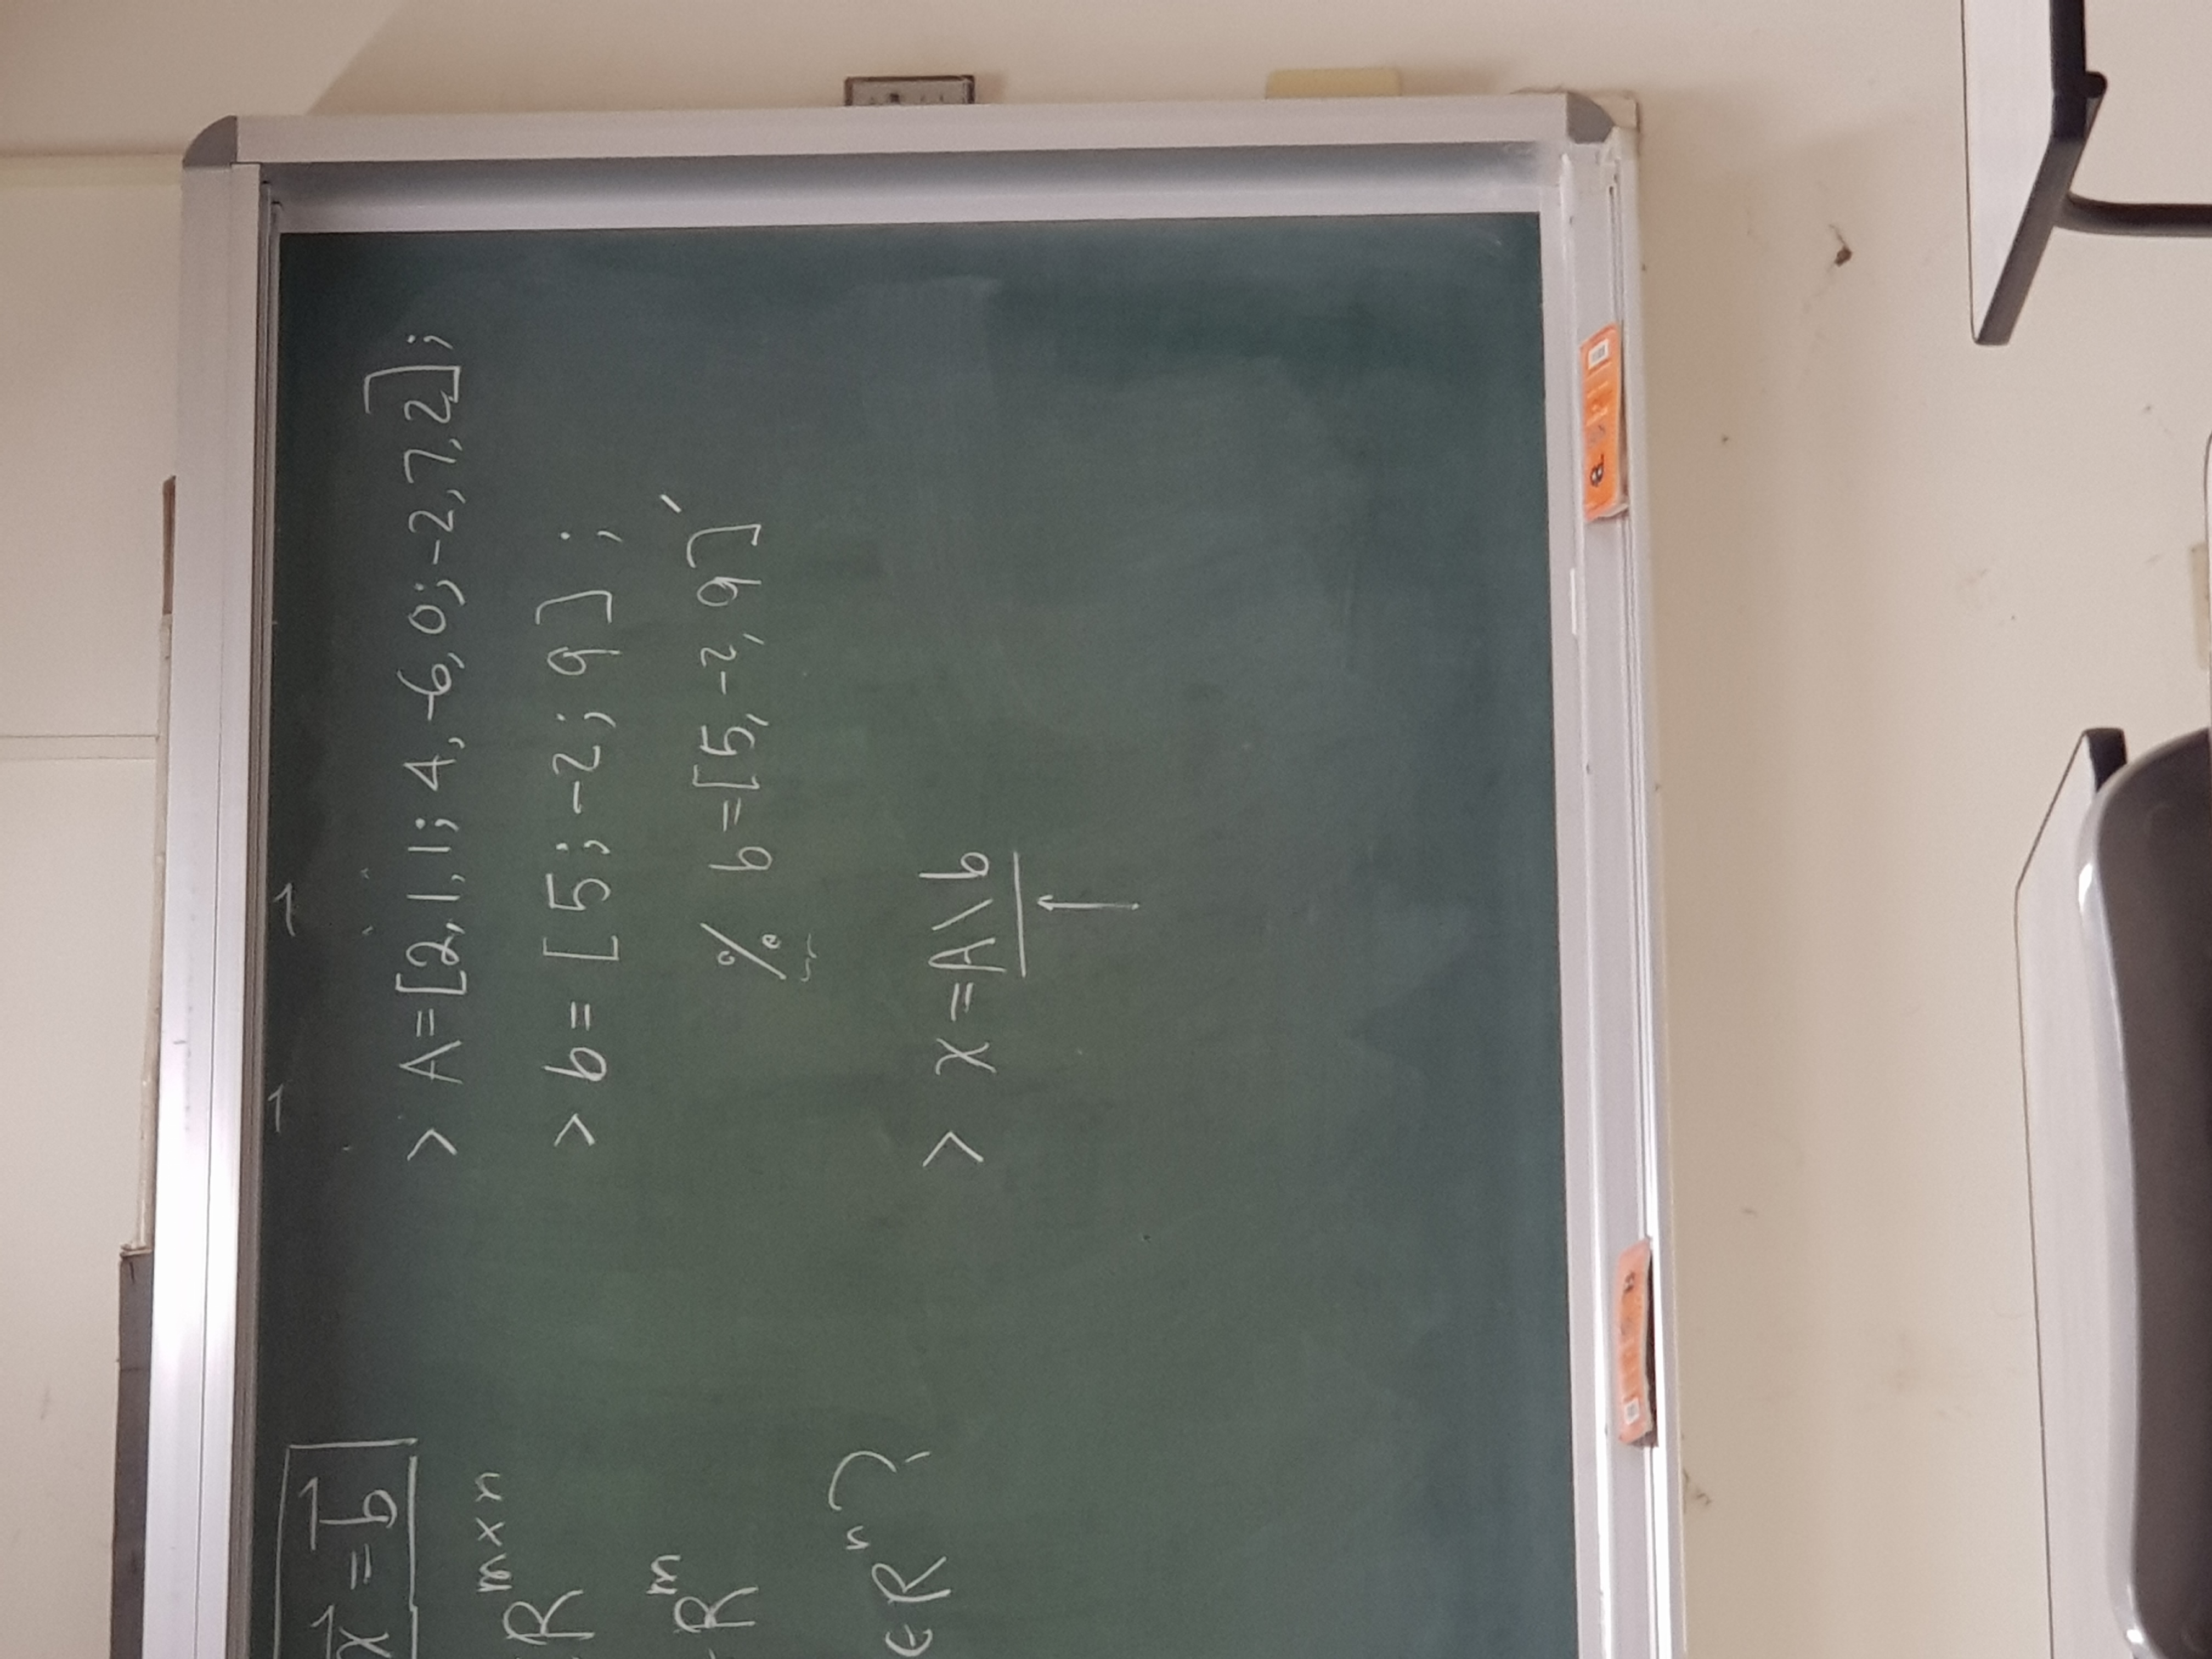 x⃗ = b⃗
R^{m×n}
R^m
∈ R^n ?
> A=[2,1,1; 4,-6,0; -2,7,2];
> b= [5; -2; 9] ;
% b=[5,-2,9]'
> x=A\b